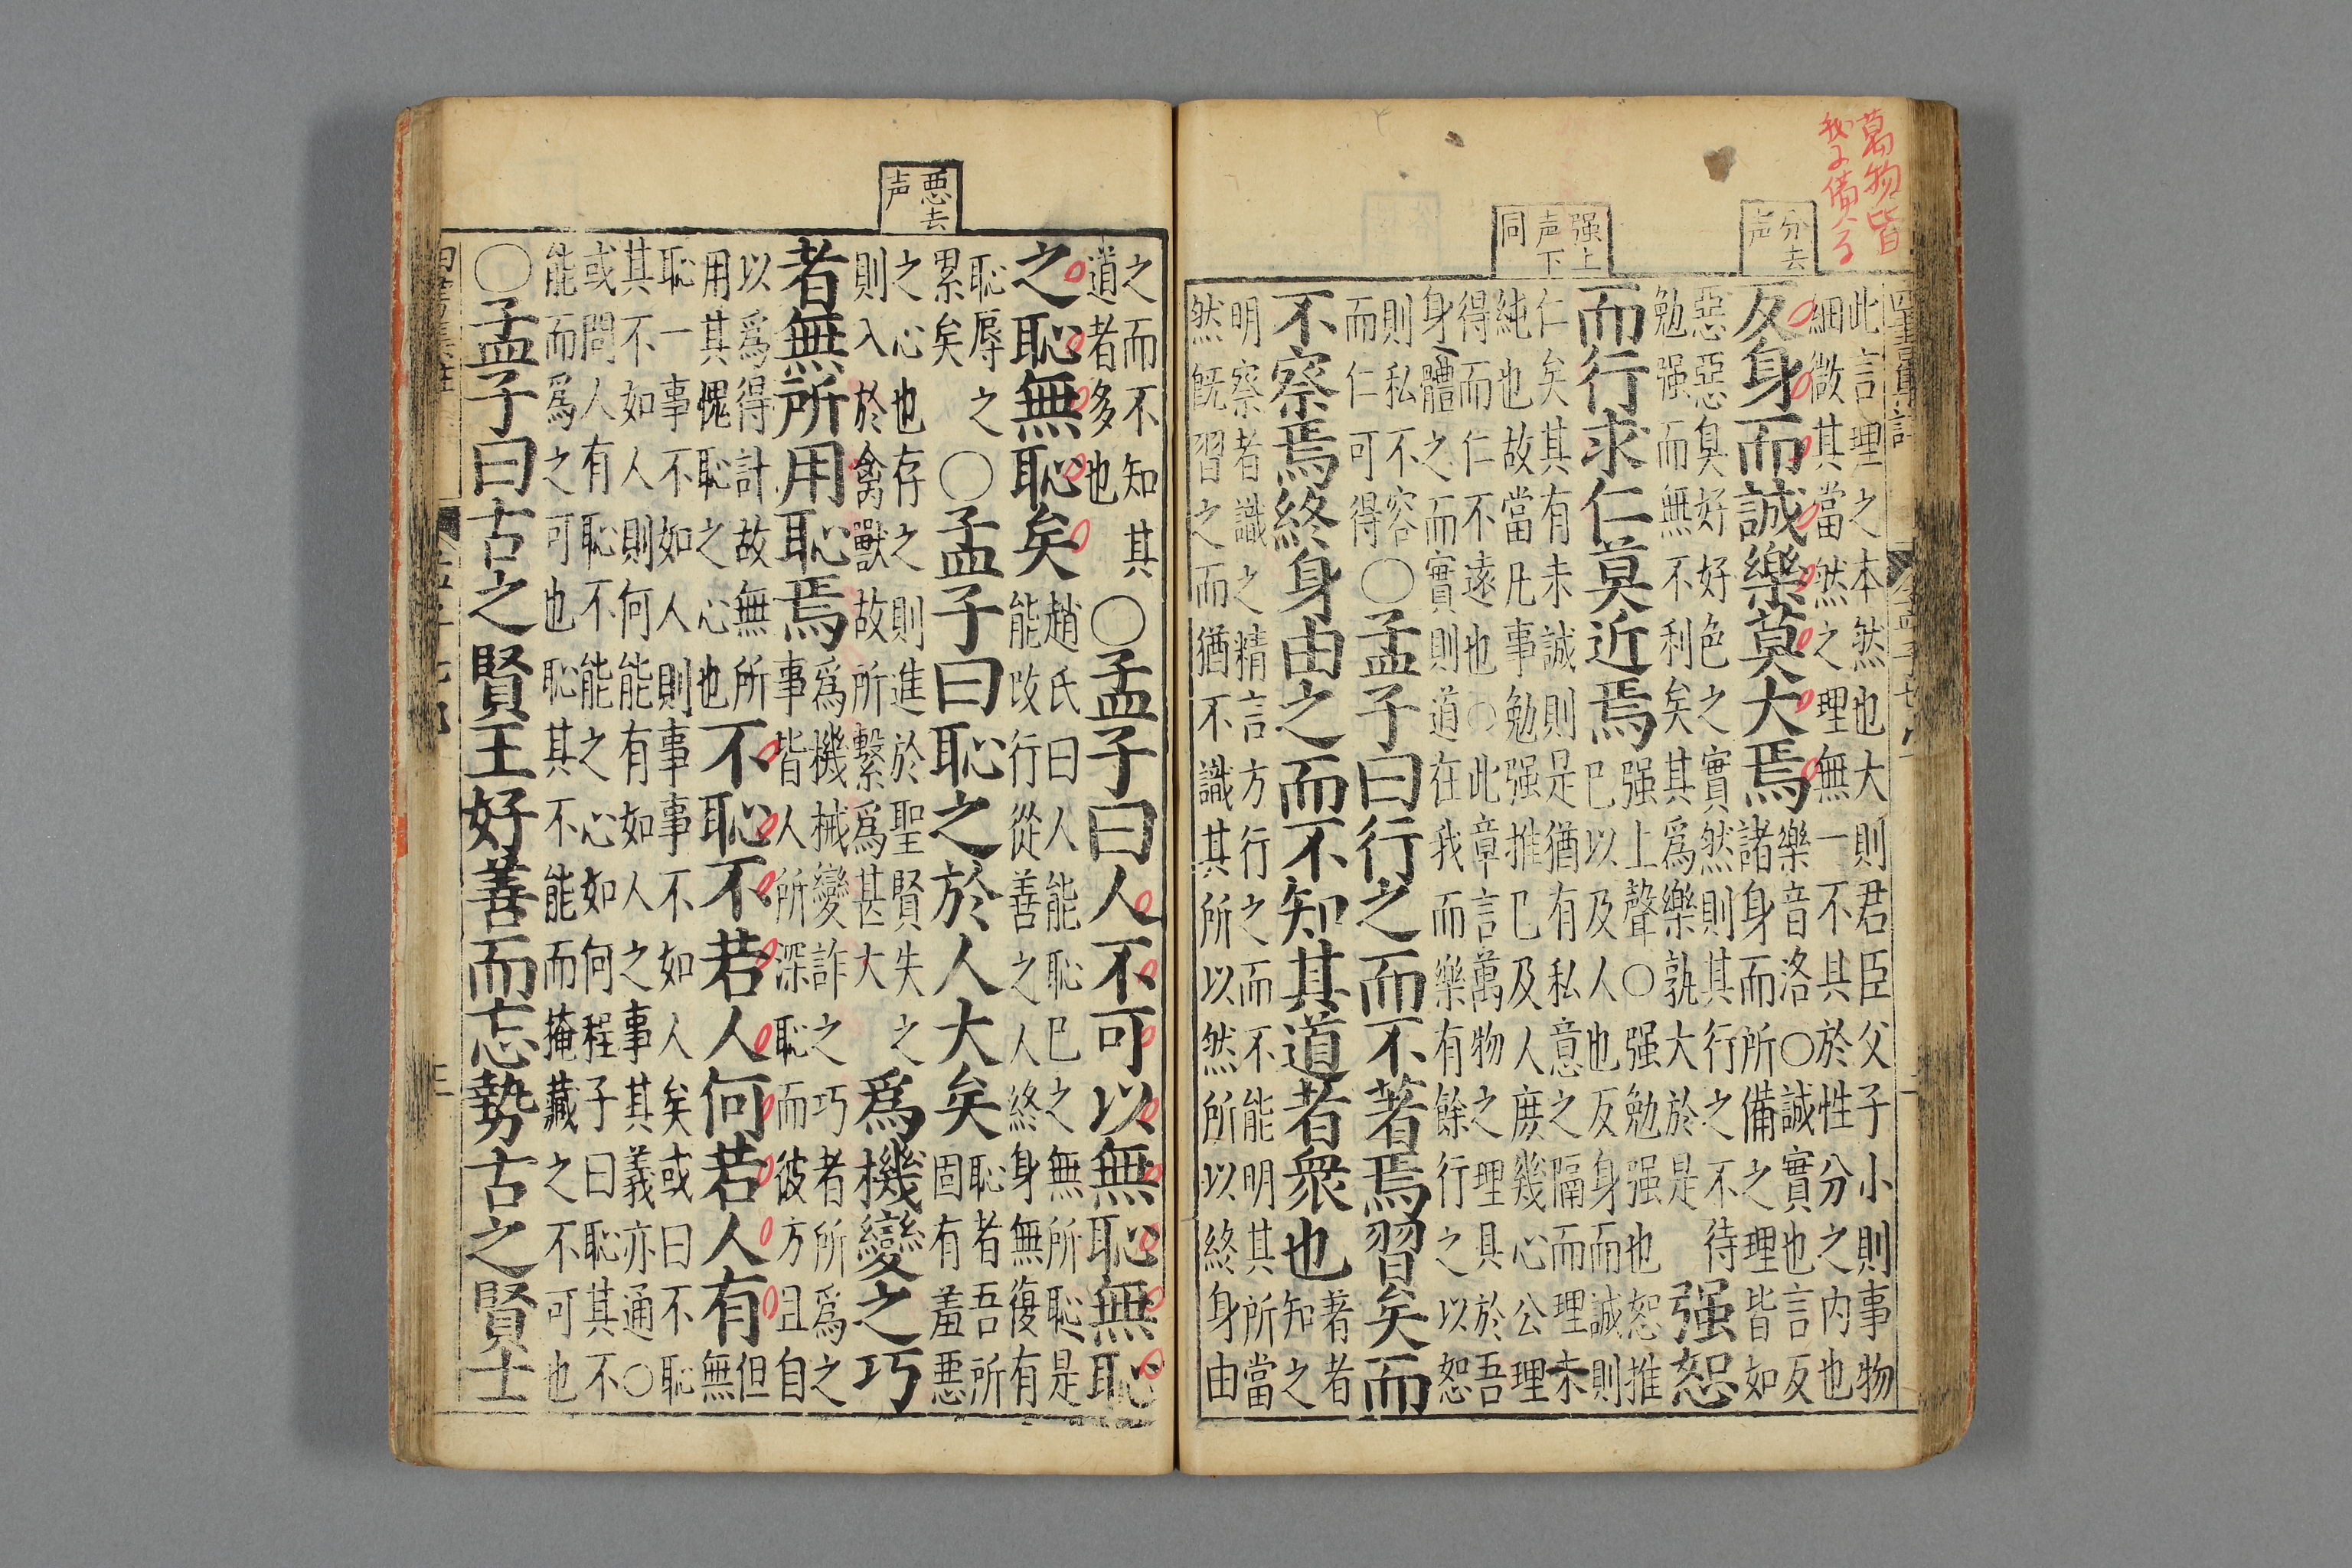 萬物皆
分去
声
强上
声下
同
此言理之本然也大則君臣父子小則事物
細微其當然之理無一不具於性分之內也
反身而誠樂莫大焉
樂音洛○誠實也言反
諸身而所備之理皆如
惡惡臭好好色之實然則其行之不待
勉强而無不利矣其爲樂孰大於是
强恕
而行求仁莫近焉
强上聲○强勉强也恕推
已以及人也反身而誠則
仁矣其有未誠則是猶有私意之隔而理未
純也故當凡事勉强推已及人庶幾心公理
得而仁不遠也○此章言萬物之理具於吾
身體之而實則道在我而樂有餘行之以恕
則私不容
而仁可得
○孟子曰行之而不著焉習矣而
不察焉終身由之而不知其道者衆也
著者
知之
明察者識之精言方行之而不能明其所當
然旣習之而猶不識其所以然所以終身由
惡去
声
之而不知其
道者多也
○孟子曰人不可以無恥無恥
之恥無恥矣
趙氏曰人能恥已之無所恥是
能改行從善之人終身無復有
恥辱之
累矣
○孟子曰恥之於人大矣
恥者吾所
固有羞惡
之心也存之則進於聖賢失之
則入於禽獸故所繫爲甚大
爲機變之巧
者無所用恥焉
爲機械變詐之巧者所爲之
事皆人所深恥而彼方且自
以爲得計故無所
用其愧恥之心也
不恥不若人何若人有
但
無
恥一事不如人則事事不如人矣或曰不恥
其不如人則何能有如人之事其義亦通○
或問人有恥不能之心如何程子曰恥其不
能而爲之可也恥其不能而掩藏之不可也
○孟子曰古之賢王好善而忘勢古之賢士
三